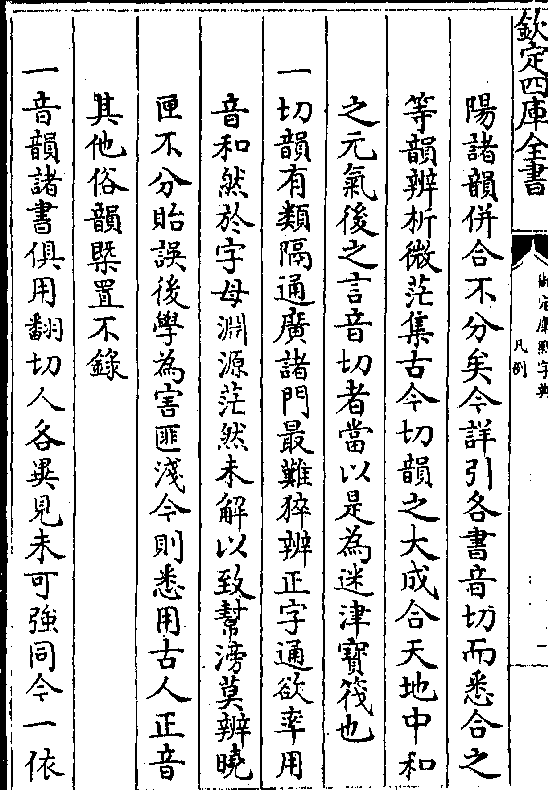 欽定四庫全書
御定康熙字典
凡例
陽諸韻併合不分矣今詳引各書音切而悉合之
等韻辨析微茫集古今切韻之大成合天地中和
之元氣後之言音切者當以是為迷津寶筏也
一切韻有類隔通廣諸門最難猝辨正字通欲率用
音和然於字母淵源茫然未解以致幫滂莫辨曉
匣不分貽誤後學為害匪淺今則悉用古人正音
其他俗韻槩置不錄
一音韻諸書俱用翻切人各異見未可強同今一依